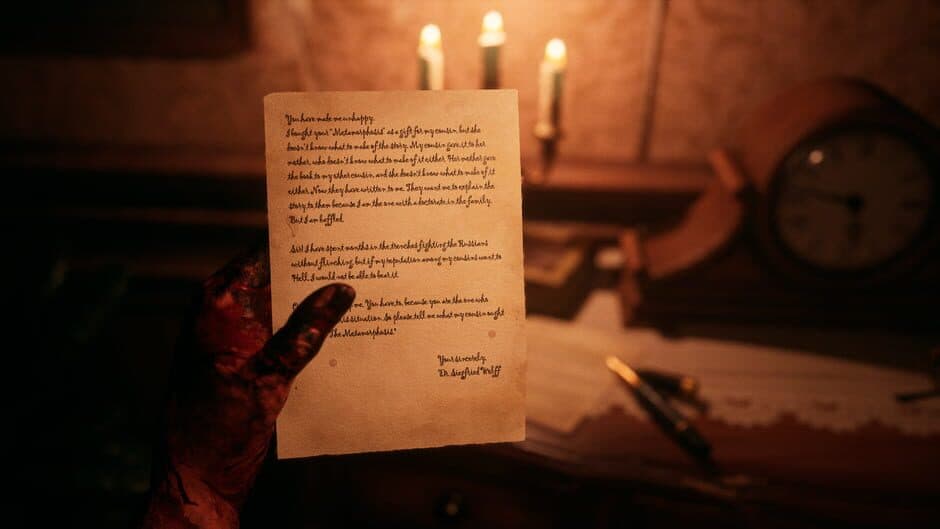 You have made me unhappy.
I bought your "Metamorphosis" as a gift for my cousin, but she
doesn't know what to make of the story. My cousin gave it to her
mother, who doesn't know what to make of it either. Her mother gave
the book to my other cousin, and she doesn't know what to make of it
either. Now they have written to me. They want me to explain the
story to them because I am the one with a doctorate in the family.
But I am baffled.
Sir! I have spent months in the trenches fighting the Russians
without flinching, but if my reputation among my cousins went to
Hell, I would not be able to bear it.
me. You have to, because you are the one who
situation. So please tell me what my cousin ought
The Metamorphosis."
Your sincerely,
Dr. Siegfried Wolff